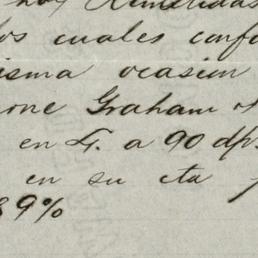 hoy Remitidas
los cuales conf
isma ocasion
one Graham
en L. a 90 d/p
en su cta p
89%